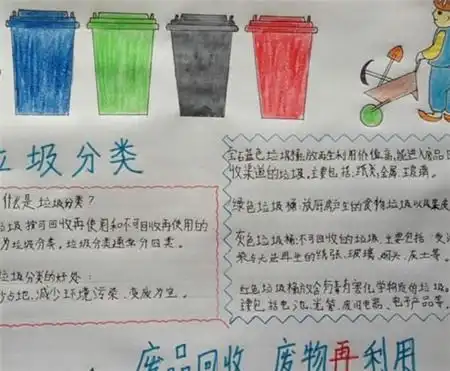 垃圾分类
什么是垃圾分类?
垃圾按可回收再使用和不可回收再使用的
为垃圾分类。垃圾分类通常分四类。
垃圾分类的好处:
少占地、减少环境污染、变废为宝。
宝石蓝色垃圾桶:放再生利用价值高,能进入废品回
收渠道的垃圾,主要包括:纸类,金属,玻璃。
绿色垃圾桶:放厨房产生的食物垃圾以及
灰色垃圾桶:不可回收的垃圾,主要包括:受污
染与无法再生的纸张、玻璃、烟头、灰土等。
红色垃圾桶放含有毒有害化学物质的垃圾。
包括电池、光管、电子产品等
废品回收 废物再利用